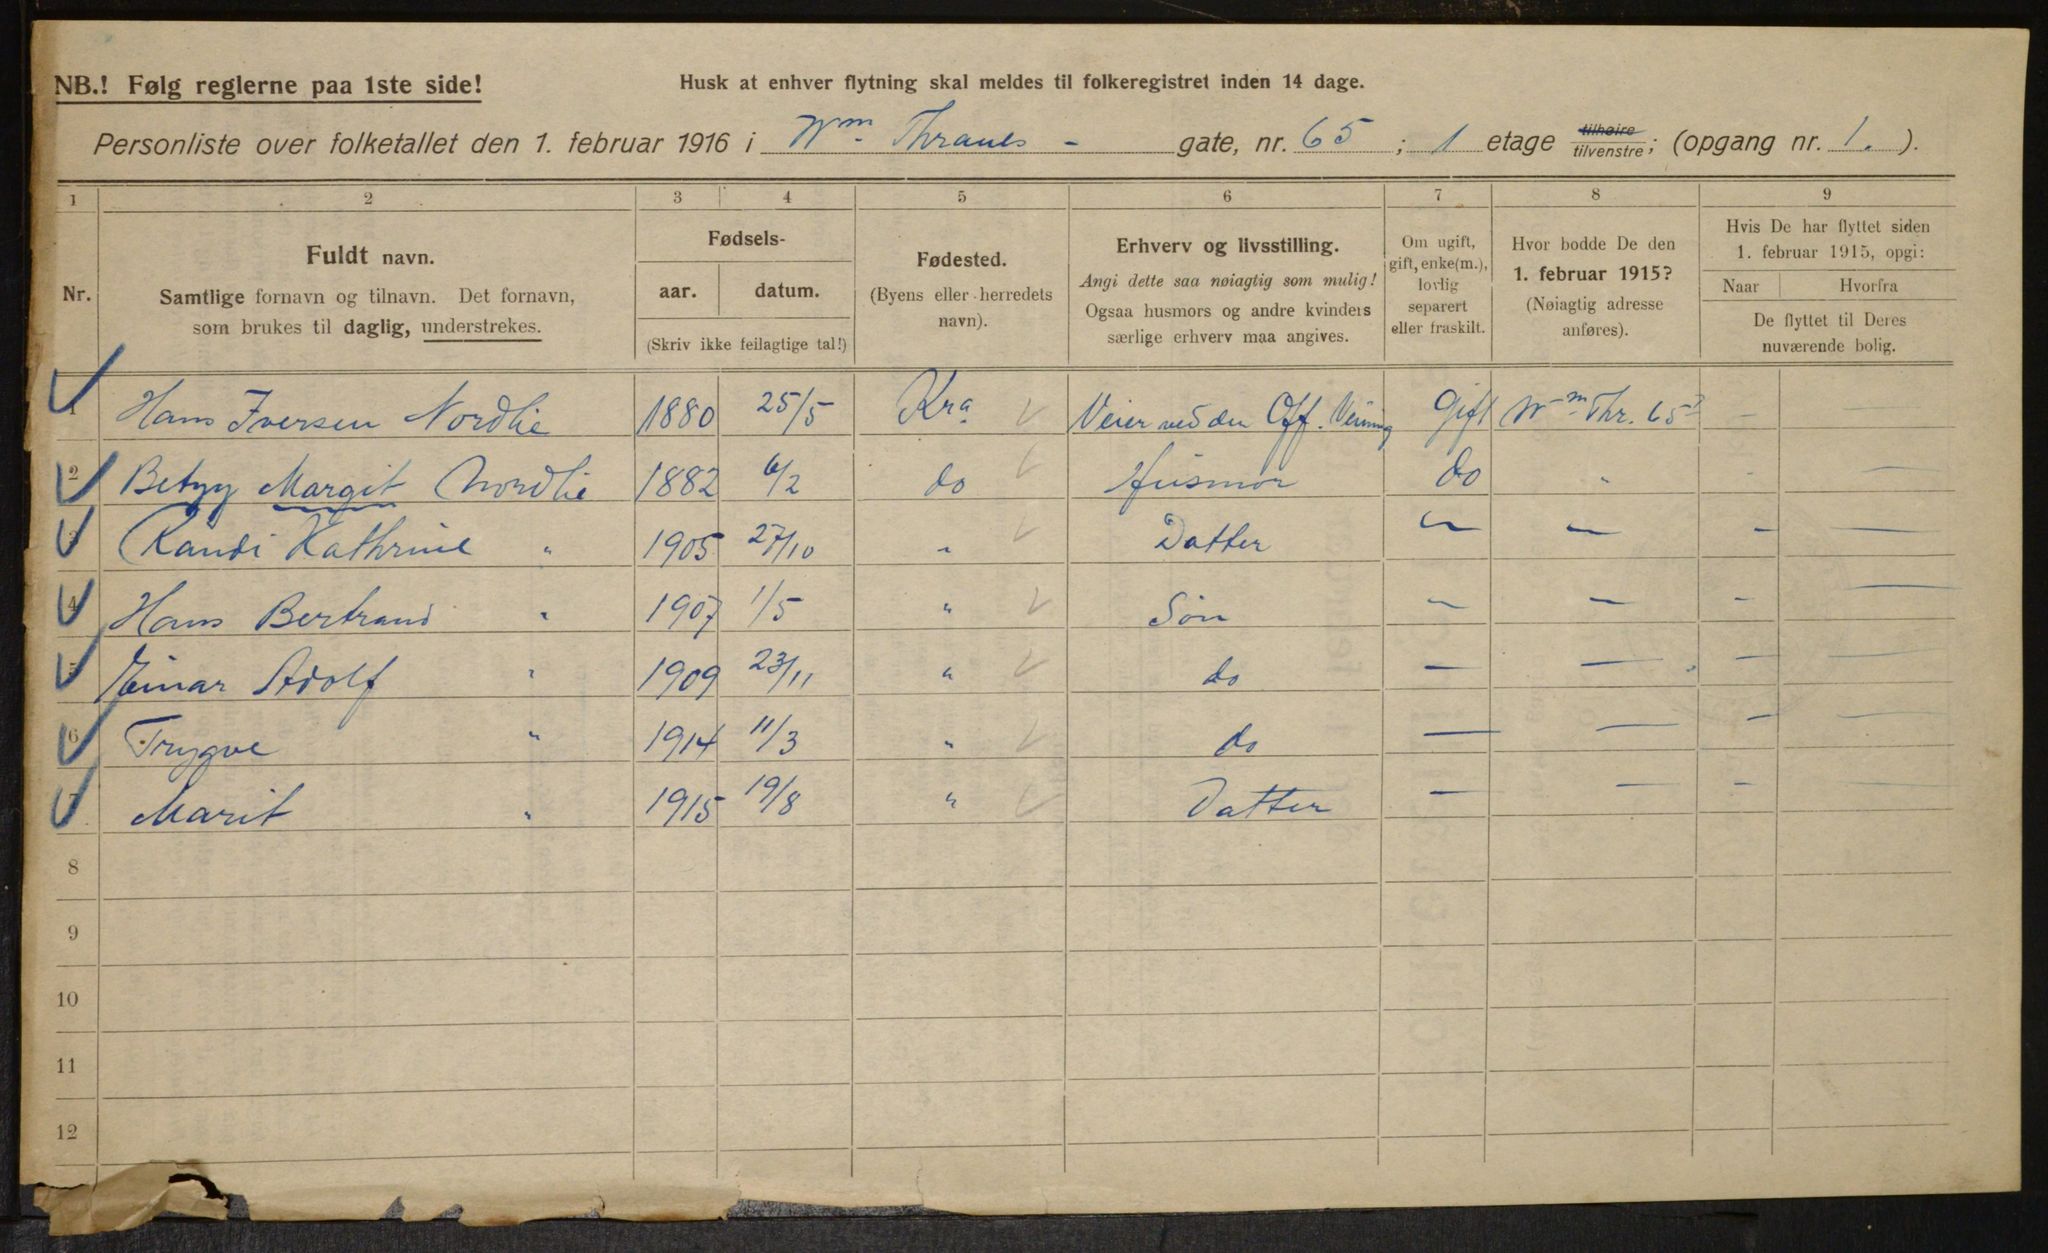 NB.! Følg reglerne paa 1ste side!
Husk at enhver flytning skal meldes til folkeregistret inden 14 dage.
Personliste over folketallet den 1. februar 1916 i Wm. Thranes - gate, nr. 65 ; 1 etage tilhøire tilvenstre; (opgang nr. 1. ).
1 2 3 4 5 6 7 8 9
Nr.
Fuldt navn.
Samtlige fornavn og tilnavn. Det fornavn,
som brukes til daglig, understrekes.
Fødsels-
aar. datum.
(Skriv ikke feilagtige tal!)
Fødested.
(Byens eller herredets
navn).
Erhverv og livsstilling.
Angi dette saa nøiagtig som mulig!
Ogsaa husmors og andre kvinders
særlige erhverv maa angives.
Om ugift,
gift, enke(m.),
lovlig
separert
eller fraskilt.
Hvor bodde De den
1. februar 1915?
(Nøiagtig adresse
anføres).
Hvis De har flyttet siden
1. februar 1915, opgi:
Naar Hvorfra
De flyttet til Deres
nuværende bolig.
1 Hans Iversen Nordlie 1880 25/5 Kra. Veier ved den Off. Veining Gift Wm Thr. 65 - —
2 Betzy Margit Nordlie 1882 6/2 do Husmor do " - —
3 Randi Kathrine " 1905 27/10 " Datter — — - —
4 Hans Bertrand " 1907 1/5 " Søn — — - —
5 Einar Adolf " 1909 23/11 " do — — - —
6 Trygve " 1914 11/3 " do — — - —
7 Marit " 1915 19/8 " Datter — — - —
8
9
10
11
12